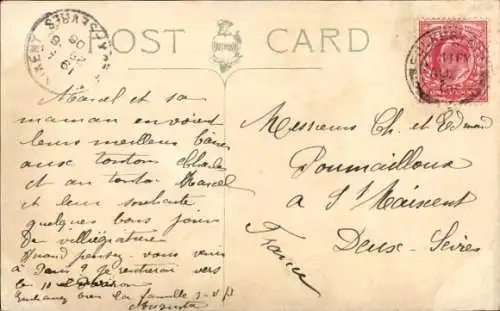 POST CARD
Marcel et sa
maman envoient
leurs meilleurs
aux tontons Charles
et au tonton Marcel
et leur souhaite
quelques bons jours
de villégiature
Quand pensez-vous venir
à Paris ? je rentrerai vers
le 10 environ
bien la famille s-v-p
Augusta
Messieurs Ch et Edmond
Poumailloux
à St Maixent
Deux-Sèvres
France